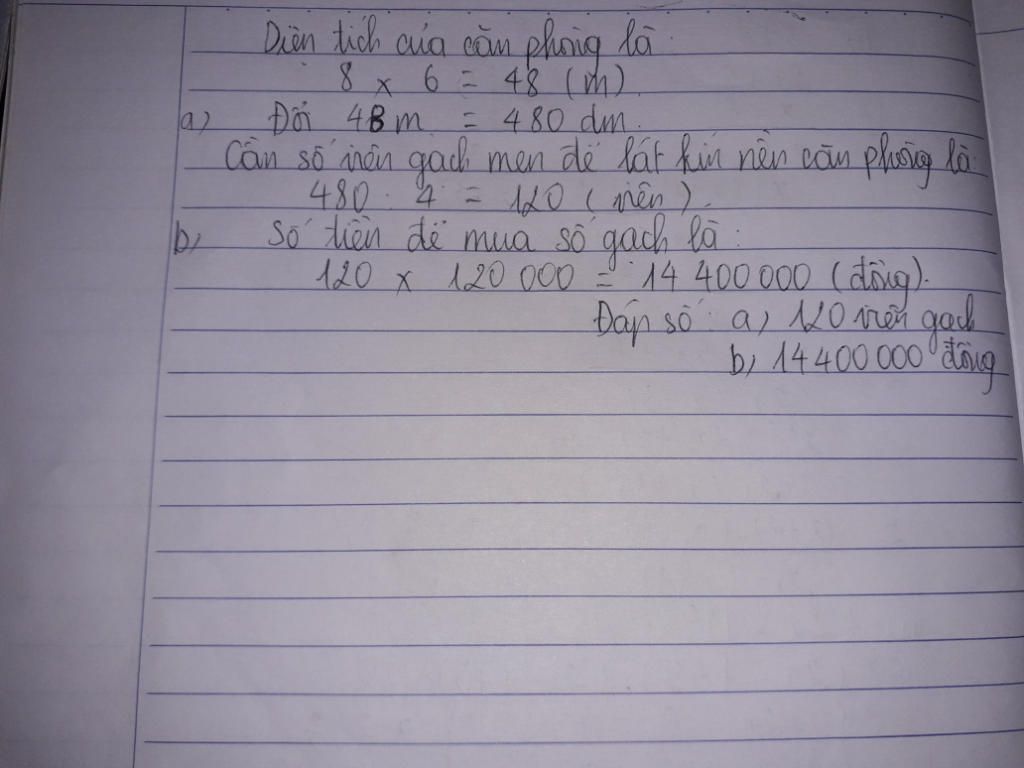 Diện tích của căn phòng là
8 x 6 = 48 (m)
a) Đổi 48m = 480 dm.
Cần số viên gạch men để lát kín nền căn phòng là:
480 : 4 = 120 (viên).
b) Số tiền để mua số gạch là:
120 x 120 000 = 14 400 000 (đồng).
Đáp số: a) 120 viên gạch
b) 14 400 000 đồng